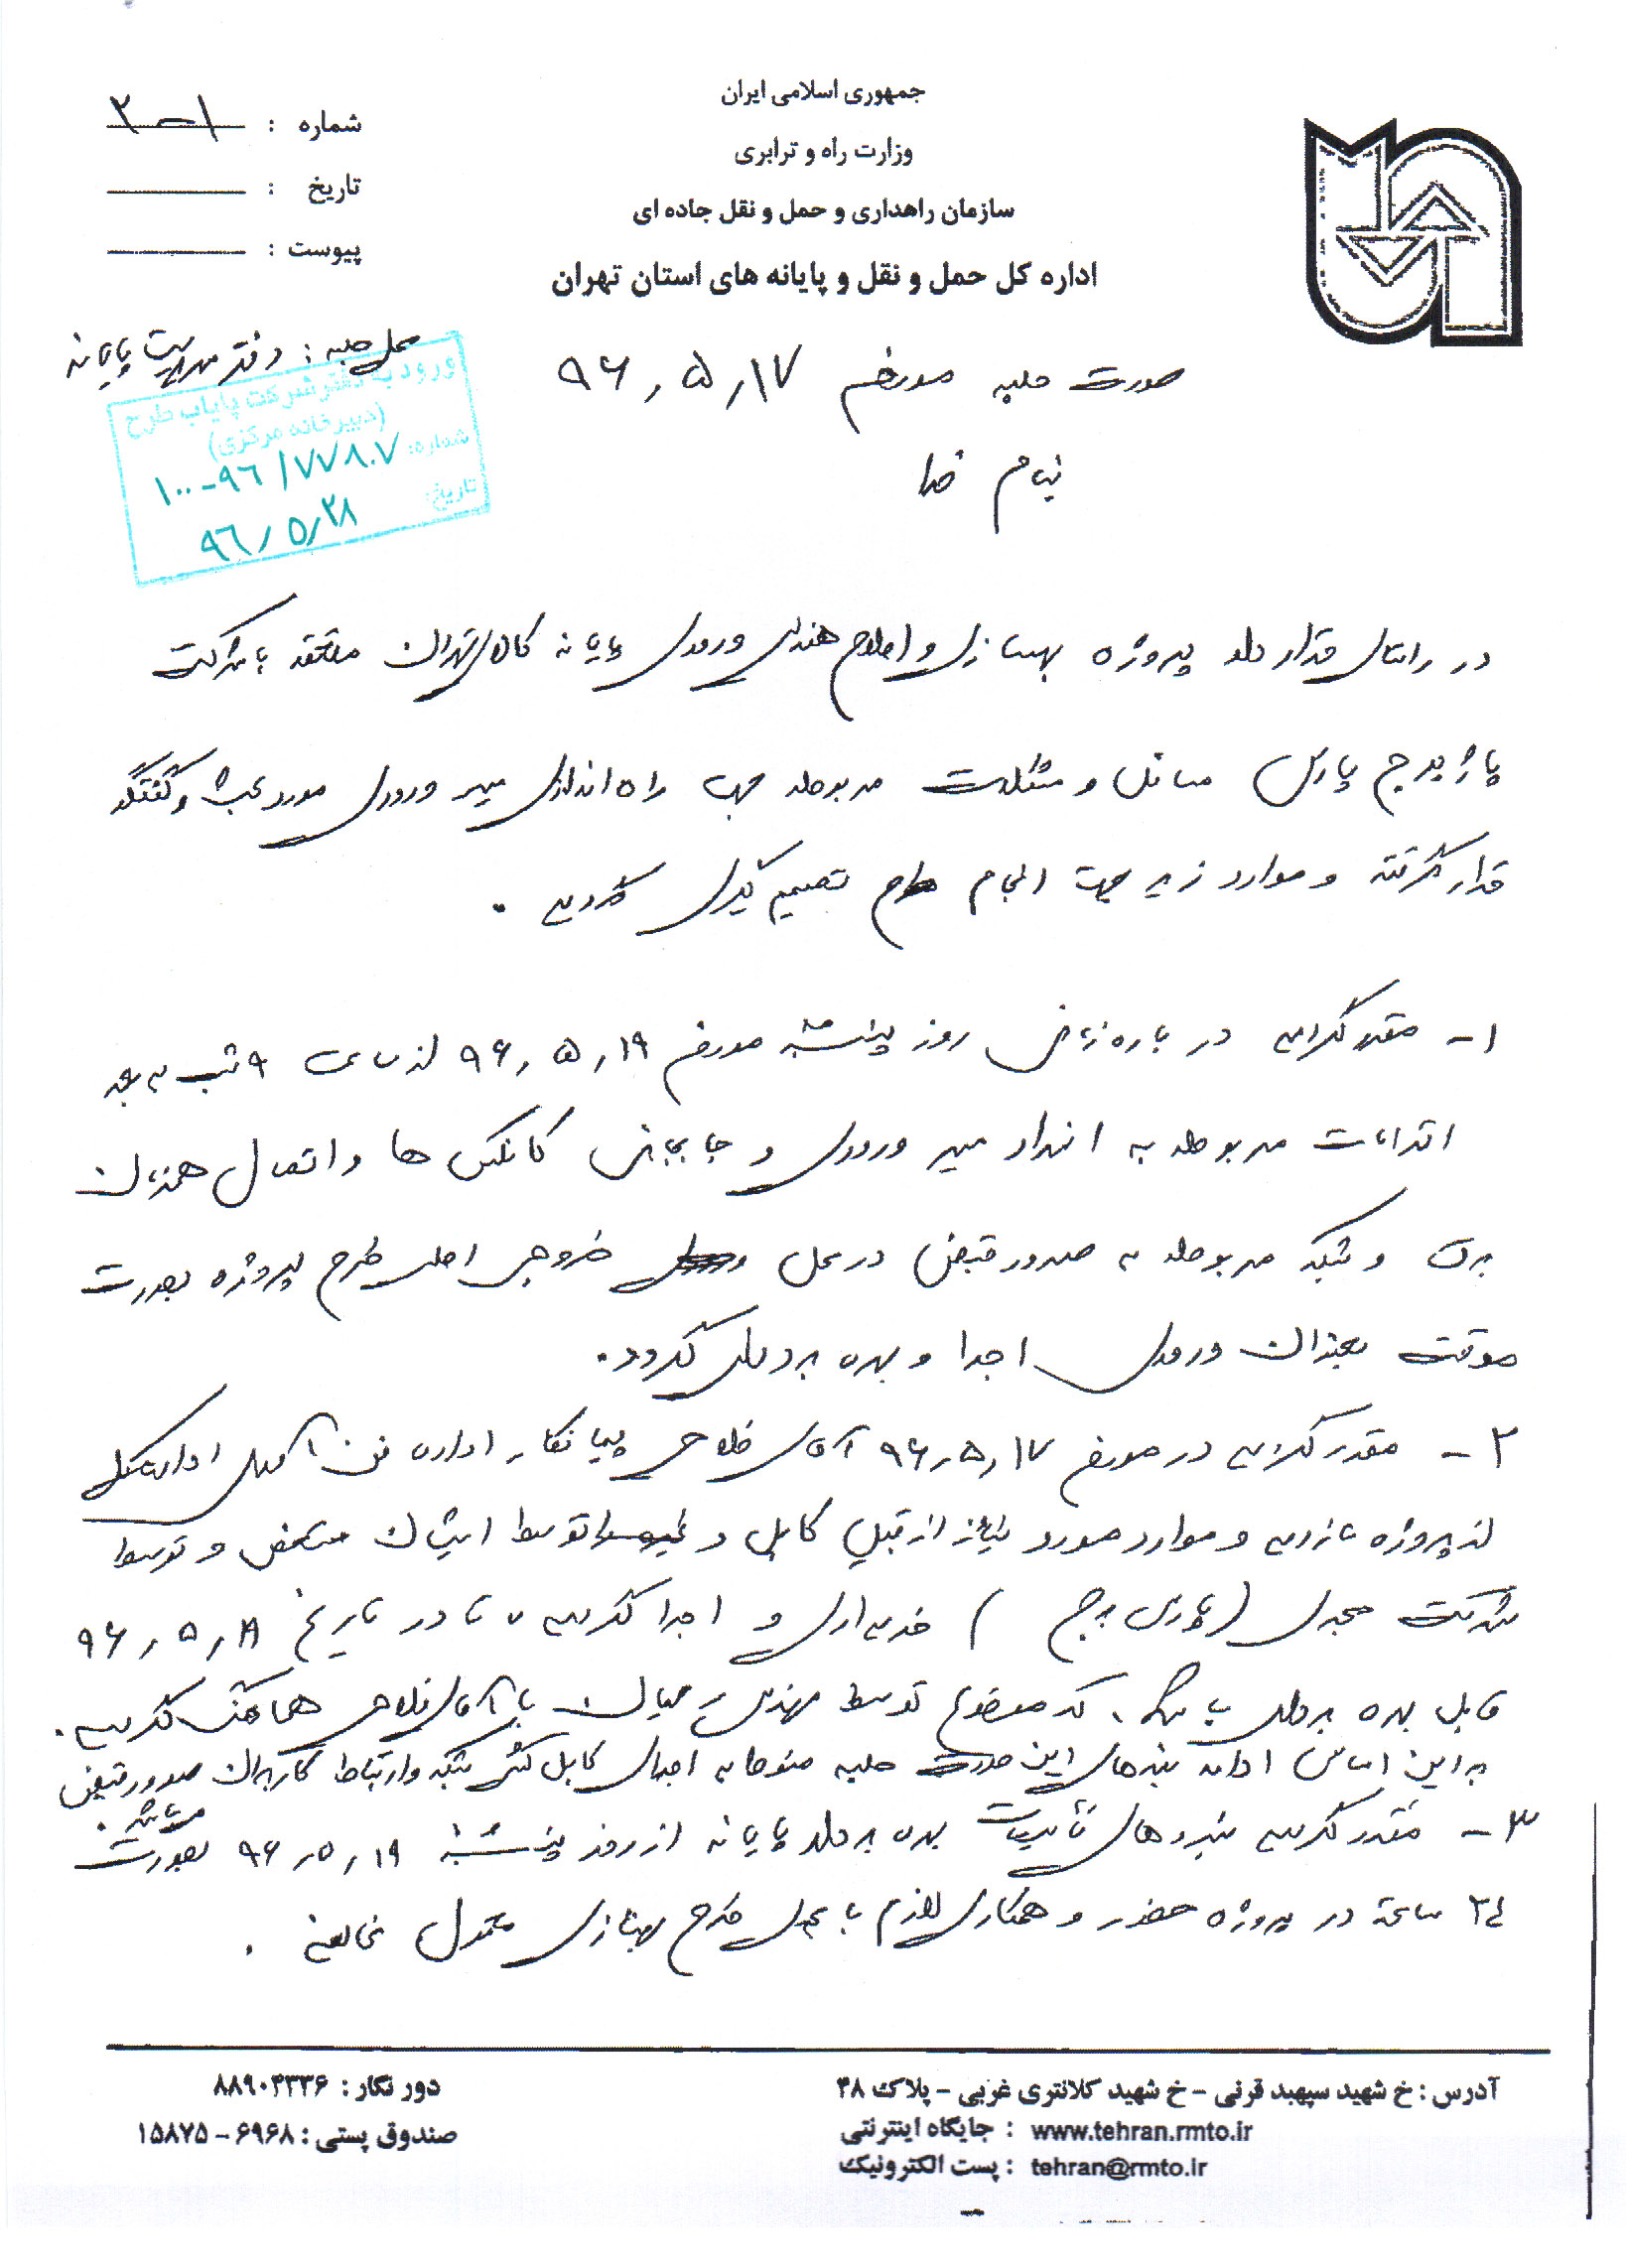 جمهوری اسلامی ایران
وزارت راه و ترابری
سازمان راهداری و حمل و نقل جاده ای
اداره کل حمل و نقل و پایانه های استان تهران
شماره : ۱-۲
تاریخ :
پیوست :
محل جلسه : دفتر مدیریت پایانه
صورت جلسه مورخ ۹۶/۵/۱۷
ورود به دفتر شرکت پایاب طرح
(دبیرخانه مرکزی)
شماره: ۱۰۰-۹۶/۷۷۸۰۷
تاریخ: ۹۶/۵/۲۸
بنام خدا
در راستای قرارداد پروژه بهسازی و اصلاح هندسی ورودی پایانه کالای تهران منعقد با شرکت
پاژ برج پارس مسائل و مشکلات مربوطه جهت راه اندازی مسیر ورودی مورد بحث و گفتگو
قرار گرفته و موارد زیر جهت انجام طرح تصمیم گیری گردید .
۱- مقرر گردید در بازه زمانی روز پنجشنبه مورخ ۹۶/۵/۱۹ از ساعت ۹ شب به بعد
اقدامات مربوطه به انسداد مسیر ورودی و جابجایی کانکس ها و اتصال همزمان
برق و شبکه مربوطه به صدور قبض در محل خروجی اصلی طرح پروژه بصورت
موقت بعنوان ورودی اجرا و بهره برداری گردد .
۲- مقرر گردید در مورخ ۹۶/۵/۱۷ آقای فلاحی پیمانکار اداره فن آوری اداره کل
از پروژه بازدید و موارد مورد نیاز از قبیل کابل و غیره توسط ایشان مشخص و توسط
شرکت مجری (پارس برج) خریداری و اجرا گردید تا در تاریخ ۹۶/۵/۱۸
قابل بهره برداری باشد ، که موضوع توسط مهندس با آقای فلاحی هماهنگ گردید .
بر این اساس ادامه بندهای این صورت جلسه منوط به اجرای کابل کشی شبکه و ارتباط کاربران صدور قبض
میباشد .
۳- مقرر گردید نیروهای تأسیسات بهره بردار پایانه از روز پنجشنبه ۹۶/۵/۱۹ بصورت
۲۴ ساعته در پروژه حضور و همکاری لازم با مجری طرح بهسازی معمول نمایند .
آدرس : خ شهید سپهبد قرنی - خ شهید کلانتری غربی - پلاک ۴۸
دور نگار : ۸۸۹۰۴۳۳۶
جایگاه اینترنتی : www.tehran.rmto.ir
صندوق پستی : ۶۹۶۸-۱۵۸۷۵
پست الکترونیک : tehran@rmto.ir